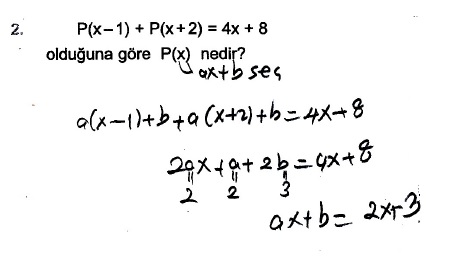 2. P(x-1) + P(x+2) = 4x + 8
olduğuna göre P(x) nedir?
ax+b seç
a(x-1)+b+a(x+2)+b=4x+8
2ax+a+2b=4x+8
2 2 3
ax+b= 2x+3